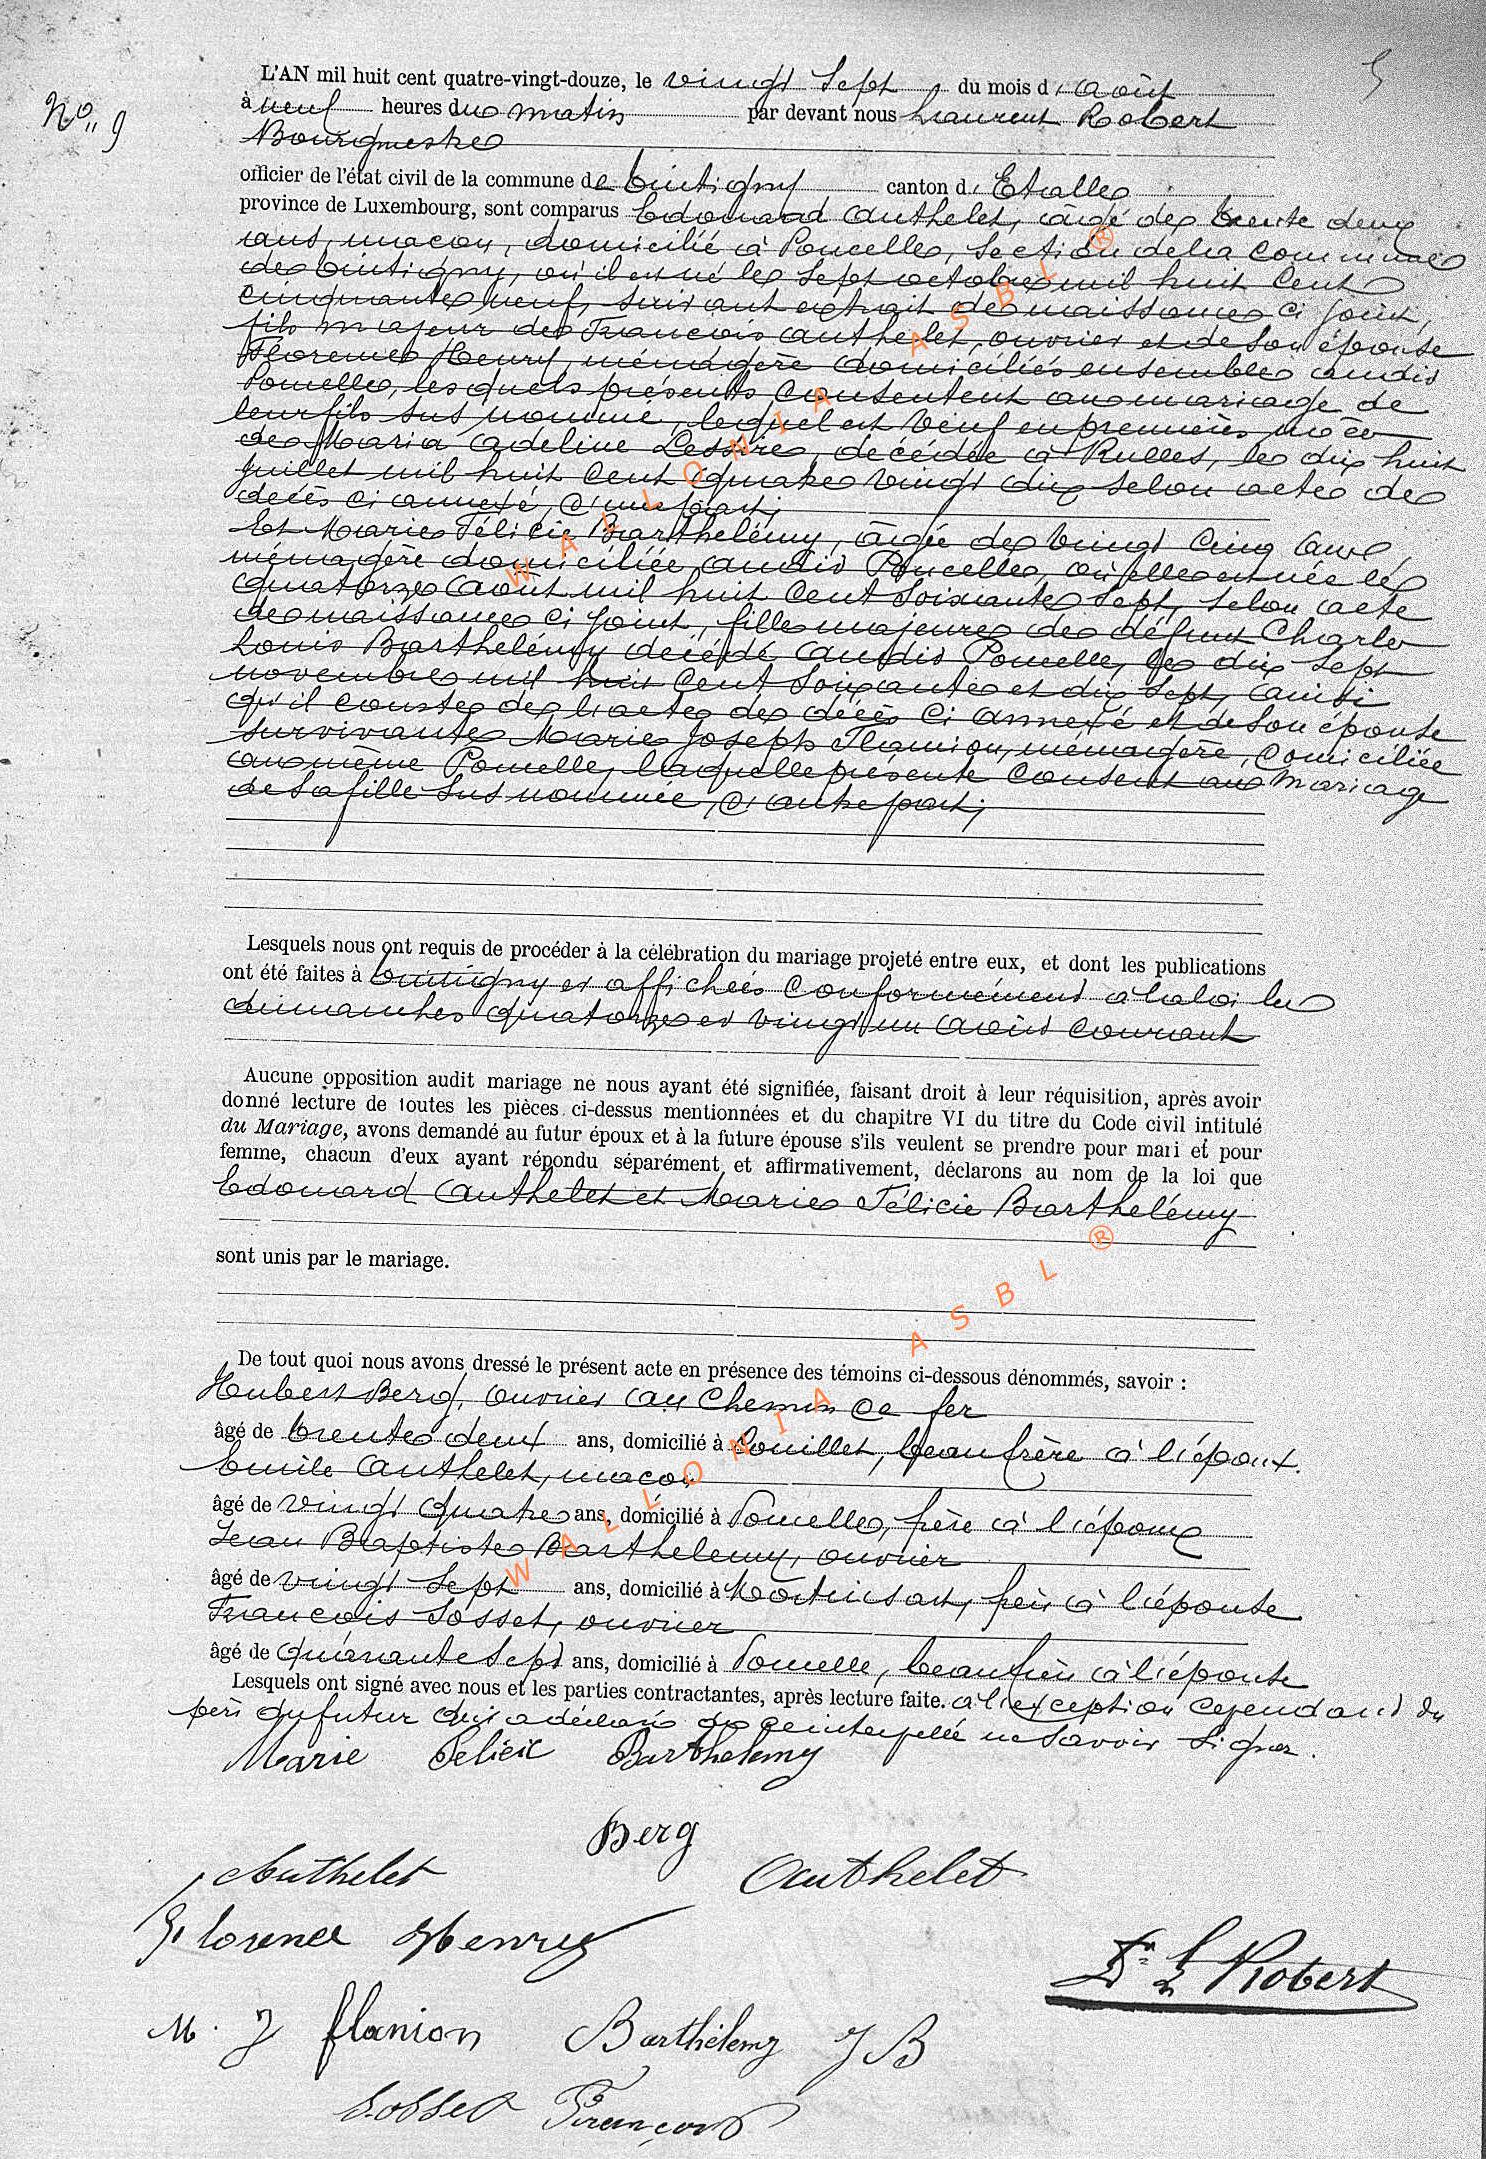 5
No 9
L'AN mil huit cent quatre-vingt-douze, le vingt sept du mois d'août
à neuf heures du matin par devant nous Laurent Robert
Bourgmestre
officier de l'état civil de la commune de Tintigny canton d'Etalle
province de Luxembourg, sont comparus Edouard Authelet, âgé de trente deux
ans, maçon, domicilié à Poncelle, section de la commune
de Tintigny, où il est né le sept octobre mil huit cent
cinquante neuf, suivant extrait de naissance ci joint,
fils majeur de François Authelet, ouvrier et de son épouse
Florence Henry, ménagère domiciliés ensemble audit
Poncelle, lesquels présents consentent au mariage de
leur fils sus nommé, lequel est veuf en premières noces
de Maria Adeline Lessire, décédée à Rulles, le dix huit
juillet mil huit cent quatre vingt dix selon acte de
décès ci annexé, d'une part;
Et Marie Félicie Barthelémy, âgée de vingt cinq ans,
ménagère domiciliée audit Poncelle, où elle est née le
quatorze août mil huit cent soixante sept, selon acte
de naissance ci joint, fille majeure de défunt Charles
Louis Barthelémy décédé audit Poncelle, le dix sept
novembre mil huit cent soixante et dix sept, ainsi
qu'il conste de l'acte de décès ci annexé et de son épouse
survivante Marie Joseph Flamion, ménagère, domiciliée
au même Poncelle, laquelle présente consent au mariage
de sa fille sus nommée, d'autre part;
Lesquels nous ont requis de procéder à la célébration du mariage projeté entre eux, et dont les publications
ont été faites à Tintigny et affichées conformément à la loi les
dimanches quatorze et vingt un août courant
Aucune opposition audit mariage ne nous ayant été signifiée, faisant droit à leur réquisition, après avoir
donné lecture de toutes les pièces ci-dessus mentionnées et du chapitre VI du titre du Code civil intitulé
du Mariage, avons demandé au futur époux et à la future épouse s'ils veulent se prendre pour mari et pour
femme, chacun d'eux ayant répondu séparément et affirmativement, déclarons au nom de la loi que
Edouard Authelet et Marie Félicie Barthelémy
sont unis par le mariage.
De tout quoi nous avons dressé le présent acte en présence des témoins ci-dessous dénommés, savoir :
Hubert Berg, ouvrier au chemin de fer
âgé de trente deux ans, domicilié à Couillet, beau frère à l'époux.
Emile Authelet, maçon
âgé de vingt quatre ans, domicilié à Poncelle, frère à l'époux
Jean Baptiste Barthelemy, ouvrier
âgé de vingt sept ans, domicilié à Martinsart, frère à l'épouse
François Sosset, ouvrier
âgé de quarante sept ans, domicilié à Poncelle, beau frère à l'épouse
Lesquels ont signé avec nous et les parties contractantes, après lecture faite. à l'exception cependant du
père du futur qui a déclaré de ce interpellé ne savoir signer.
Marie Félicie Barthelemy
Berg
Authelet Authelet
Florence Henry
Dr L Robert
M. J flamion Barthélemy J B
Sosset François
WALLONIA ASBL ®
WALLONIA ASBL ®